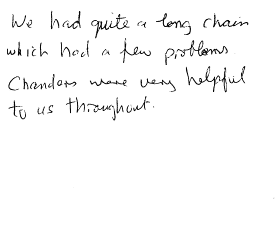 We had quite a long chain
which had a few problems
Chandlers were very helpful
to us throughout.